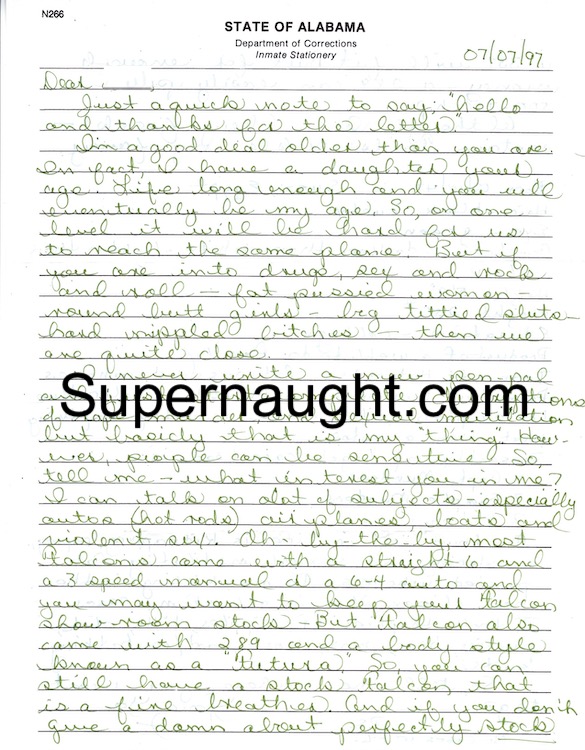 N266
STATE OF ALABAMA
Department of Corrections
Inmate Stationery
07/07/97
Dear
Just a quick note to say, "hello
and thanks for the letter."
I'm a good deal older than you are.
In fact, I have a daughter your
age. Life long enough and you will
eventually be my age. So, on one
level it will be hard for us
to reach the same plane. But if
you are into drugs, sex and rock
and roll — fat pussied women —
round butt girls — big tittied sluts —
hard nippled bitches — then we
are quite close.
I never write a new pen-pal
Supernaught.com
but basicly that is my "thing". How-
ever, people can be sensitive. So,
tell me — what interest you in me?
I can talk on alot of subjects — especially
autos (hot rods) airplanes, boats and
violent sex. Oh - by-the-by, most
Falcons came with a straight 6 and
a 3 speed manual or a 6-4 auto and
you may want to keep your Falcon
show-room stock — But Falcon also
came with 289 and a body style
known as a "futura." So, you can
still have a stock Falcon that
is a fire breather. And if you don't
give a damn about perfectly stock